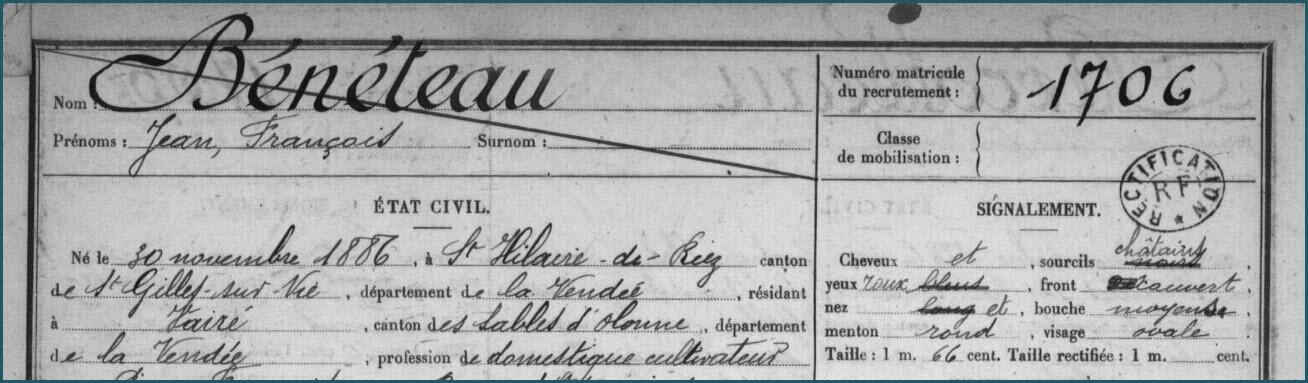 Nom : Bénéteau
Prénoms : Jean, François Surnom :
ÉTAT CIVIL.
Né le 30 novembre 1886, à St Hilaire-de-Riez canton
de St Gilles-sur-Vie, département de la Vendée, résidant
à Vairé, canton des Sables d'Olonne, département
de la Vendée, profession de domestique cultivateur
Numéro matricule
du recrutement : 1706
Classe
de mobilisation :
RECTIFICATION RF
SIGNALEMENT.
châtains
Cheveux et, sourcils noirs,
yeux roux bleus, front couvert,
nez long et, bouche moyenne
menton rond, visage ovale
Taille : 1 m. 66 cent. Taille rectifiée : 1 m. cent.